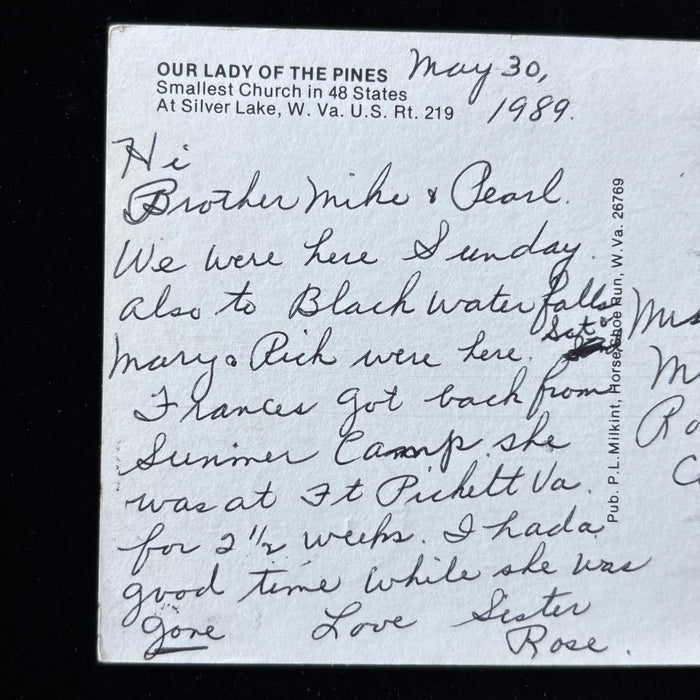 OUR LADY OF THE PINES
Smallest Church in 48 States
At Silver Lake, W. Va. U.S. Rt. 219
May 30,
1989.
Hi
Brother Mike & Pearl.
We were here Sunday.
also to Black Water falls
Sat.
Mary & Rich were here.
Frances got back from
Summer Camp. she
was at Ft Pickett Va.
for 2 1/2 weeks. I had a
good time while she was
gone Love Sister
Rose.
Pub. P.L.Milkint, Horse Shoe Run, W.Va. 26769